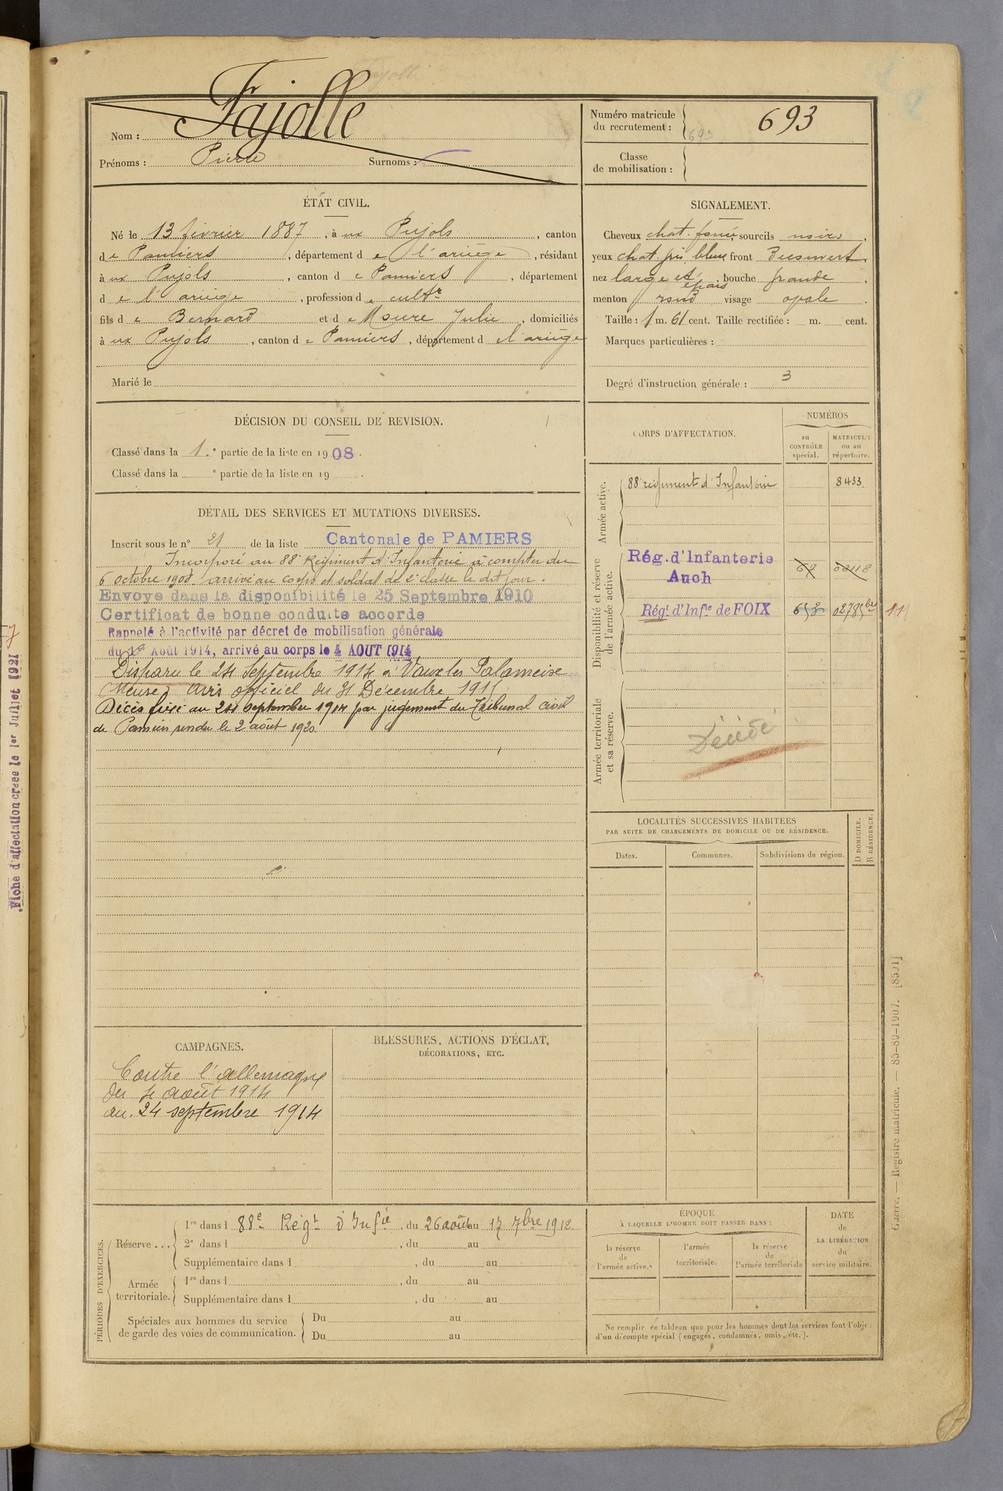 Fajolle
Nom :
Prénoms : Pierre Surnoms :
Numéro matricule
du recrutement : 693
693
Classe
de mobilisation :
ÉTAT CIVIL.
Né le 13 février 1887, à ux Pujols, canton
de Pamiers, département de l'ariège, résidant
à ux Pujols, canton de Pamiers, département
de l'ariège, profession de cultr
fils de Bernard et de Moure Julie, domiciliés
à ux Pujols, canton de Pamiers, département d el'ariège
Marié le
SIGNALEMENT.
Cheveux chat. foncé, sourcils noirs,
yeux chat. gris bleu front Découvert,
nez large et épais, bouche grande,
menton rond visage ovale.
Taille : 1 m. 61 cent. Taille rectifiée : m. cent.
Marques particulières :
Degré d'instruction générale : 3
DÉCISION DU CONSEIL DE REVISION.
Classé dans la 1.e partie de la liste en 1908.
Classé dans la e partie de la liste en 19
DÉTAIL DES SERVICES ET MUTATIONS DIVERSES.
Inscrit sous le n° 21 de la liste Cantonale de PAMIERS
Incorporé au 88e Régiment d'Infanterie à compter du
6 octobre 1908, arrivé au corps et soldat de 2e classe le dit jour.
Envoyé dans la disponibilité le 25 Septembre 1910
Certificat de bonne conduite accordé
Rappelé à l'activité par décret de mobilisation générale
du 1er Août 1914, arrivé au corps le 4 AOUT 1914
Disparu le 24 Septembre 1914 à Vaux les Palameix
(Meuse) avis officiel du 31 Décembre 1915
Décès fixé au 24 septembre 1914 par jugement du Tribunal civil
de Pamiers rendu le 2 août 1920
CORPS D'AFFECTATION.
NUMÉROS
au
CONTRÔLE
spécial.
MATRICULE
ou au
répertoire.
Armée active.
88e régiment d'Infanterie 8433
Disponibilité et réserve
de l'armée active.
Rég. d'Infanterie
Auch
Régt d'Infie de FOIX 02785bis
Armée territoriale
et sa réserve.
Décédé
LOCALITÉS SUCCESSIVES HABITÉES
PAR SUITE DE CHANGEMENTS DE DOMICILE OU DE RÉSIDENCE.
Dates. Communes. Subdivisions de région.
D DOMICILE.
R RÉSIDENCE.
CAMPAGNES.
Contre l'allemagne
du 4 août 1914
au 24 septembre 1914
BLESSURES, ACTIONS D'ÉCLAT,
DÉCORATIONS, ETC.
PÉRIODES D'EXERCICES.
Réserve ...
1re dans l 88e Régt d'Infie, du 26 août au 17 7bre 1912
2e dans l , du au
Supplémentaire dans l , du au
Armée
territoriale.
1re dans l , du au
Supplémentaire dans l , du au
Spéciales aux hommes du service
de garde des voies de communication.
Du au
Du au
ÉPOQUE
À LAQUELLE L'HOMME DOIT PASSER DANS :
la réserve
de
l'armée active.
l'armée
territoriale.
la réserve
de
l'armée territoriale
DATE
de
LA LIBÉRATION
du
service militaire.
Ne remplir ce tableau que pour les hommes dont les services font l'objet
d'un décompte spécial (engagés, condamnés, omis, etc.).
Fiche d'affectation créée le 1er Juillet 1921
Guerre. — Registre matricule. — 85-89-1907. [8501]